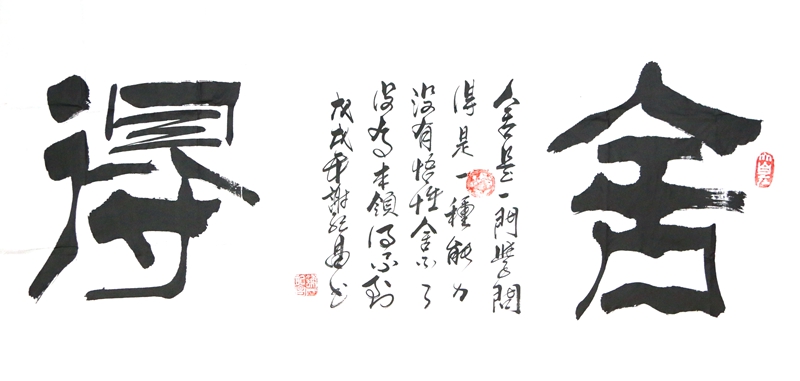 舍
舍是一門學問
得是一種能力
沒有悟性舍不了
沒有本領得不到
戊戌年謝昌书
得